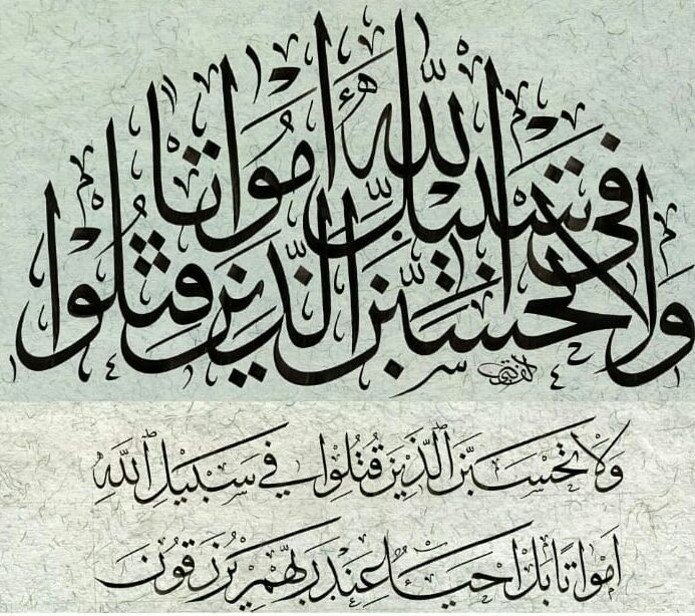 ولا تحسبن الذين قتلوا
في سبيل الله أمواتا
وَلَا تَحْسَبَنَّ الَّذِينَ قُتِلُوا فِي سَبِيلِ اللَّهِ
اَمْوَاتًا بَلْ اَحْيَاءٌ عِنْدَ رَبِّهِمْ يُرْزَقُونَ